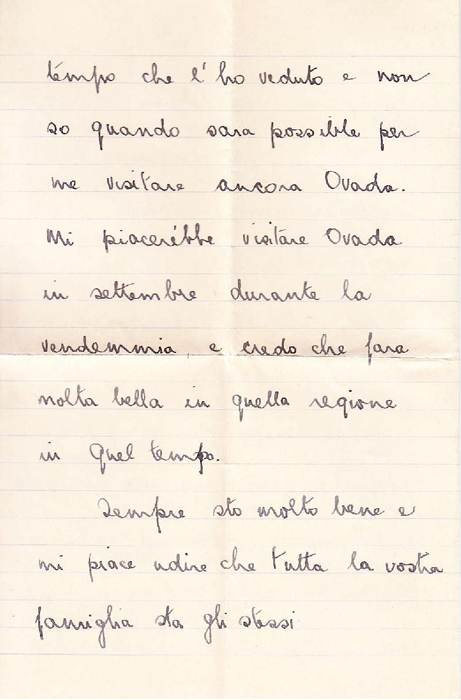 témpo che l'ho veduto e non
so quando sara possible per
me visitare ancora Ovada.
Mi piacerébbe visitare Ovada
in settembre durante la
vendemmia, e credo che fara
molta bella in quella regione
in quel tempo.
Sempre sto molto bene e
mi piace udire che tutta la vostra
famiglia sta gli stessi